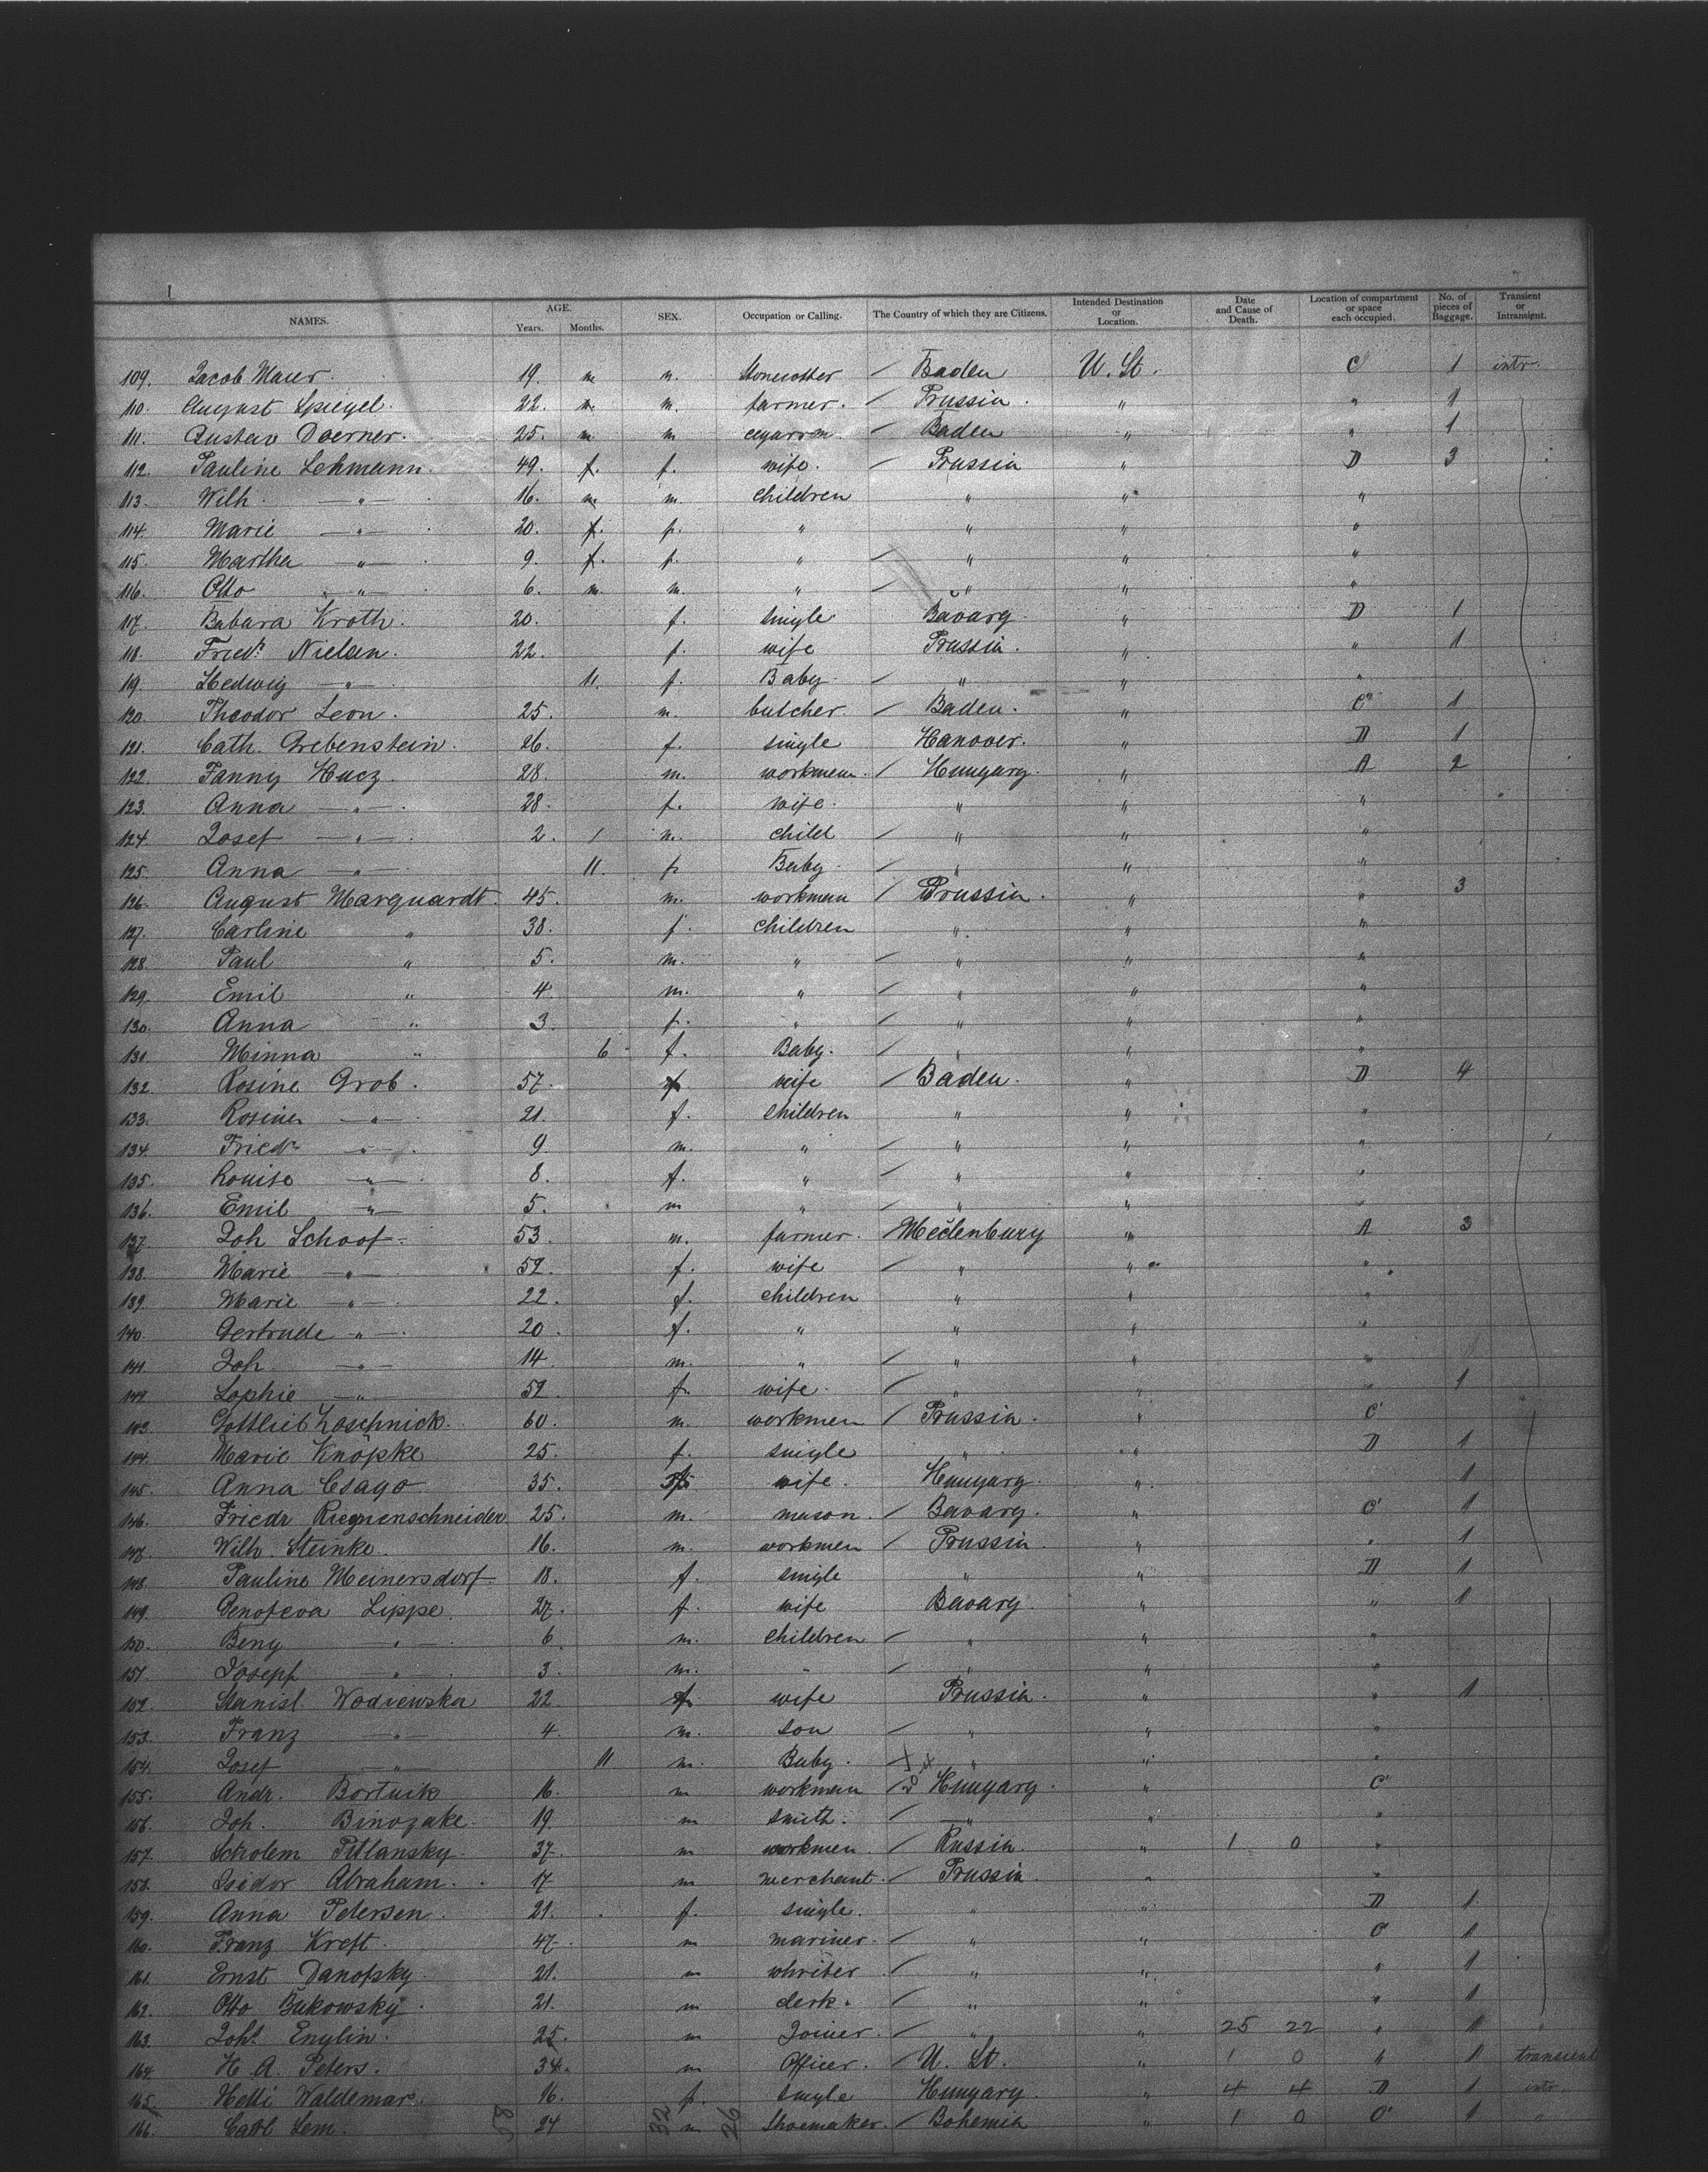 NAMES. AGE. Years. Months. SEX. Occupation or Calling. The Country of which they are Citizens. Intended Destination or Location. Date and Cause of Death. Location of compartment or space each occupied. No. of pieces of Baggage. Transient or Intransient.
109. Jacob Maier. 19. m m. Stonecotter / Baden U. St. C 1 intr.
110. August Spiegel. 22. m. m. farmer. / Prussia. " " 1
111. Gustav Doerner. 25. m m cigarrm. / Baden " " 1
112. Pauline Lehmann. 49. f. f. wife. / Prussia " D 3
113. Wilh. —"— 16. m m. children " " "
114. Marie —"— 20. f. f. " " " "
115. Martha —"— 9. f. f. " / " " "
116. Otto —"— 6. m. m. " / " " "
117. Babara Kroth. 20. f. single Bavarg. " D 1
118. Friedr. Nielsen. 22. f. wife Prussia. " " 1
119. Hedwig —"— 11. f. Baby. / " " "
120. Theodor Leon. 25. m. butcher. / Baden. " C 1
121. Cath. Grebenstein. 26. f. single Hanover. " D 1
122. Fanny Hucz. 28. m. workmen. / Hungary. " A 2
123. Anna —"— 28. f. wife. " " "
124. Josef —"— 2. 1 m. child / " " "
125. Anna —"— 11. f. Baby / " " "
126. August Marquardt. 45. m. workmen / Prussia. " " 3
127. Carline " 38. f. children " " "
128. Paul " 5. m. " / " " "
129. Emil " 4. m. " / " " "
130. Anna " 3. f. " / " " "
131. Minna " 6 f. Baby. / " " "
132. Rosine Grob. 57. f wife / Baden. " D 4
133. Rosine —"— 21. f. children " " "
134. Friedr. —"— 9. m. " / " " "
135. Louise —"— 8. f. " / " " "
136. Emil —"— 5. m " / " " "
137. Joh Schoof. 53. m. farmer. / Meclenburg " A 3
138. Marie —"— 52. f. wife / " " "
139. Marie —"— 22. f. children " " "
140. Gertrude —"— 20. f. " " " "
141. Joh. —"— 14. m. " / " " "
142. Sophie —"— 52. f. wife. / " " " 1
143. Gottlieb Loschnick. 60. m. workmen / Prussia. " C
144. Marie Knöpke 25. f. single " " D 1
145. Anna Csago 35. f wife. Hungarg. " 1
146. Friedr Riegnenschneider 25. m. mason. / Bavarg. " C 1
147. Wilh. Steinke. 16. m. workmen / Prussia. " " 1
148. Pauline Meinersdorf. 18. f. single " " D 1
149. Genofeva Lippe. 27. f. wife Bavarg. " " 1
150. Beny " 6 m. children / " " "
151. Joseph —"— 3. m. " / " " "
152. Stanisl. Wodiewska 22. f wife Prussia. " " 1
153. Franz " 4. m. son / " " "
154. Josef —"— 11 m. Baby. " " "
155. Andr. Bortnik 16. m workmen / Hungarg. " C
156. Joh. Binozake. 19. m smith. / —"— " "
157. Scholem Pitlansky. 37. m workmen. / Russia. " 1 0 "
158. Isidor Abraham. 17. m merchant. / Prussia. " "
159. Anna Petersen. 21. f. single. " " D 1
160. Franz Kreft. 47. m mariner. / " " C 1
161. Ernst Danofsky. 21. m whriter / " " " 1
162. Otto Bukowsky. 21. m clerk. / " " " 1
163. Joh. Englin. 25. m Joiner. / " " 25 22 " 1 "
164. H. A. Peters. 34. m Officer. / U. St. " 1 0 " 1 transient
165. Hetti Waldemar. 16. f. single Hungary. " 4 4 D 1 intr.
166. Carl Lem. 24 m Shoemaker. / Bohemia " 1 0 C 1 "
58 32 26